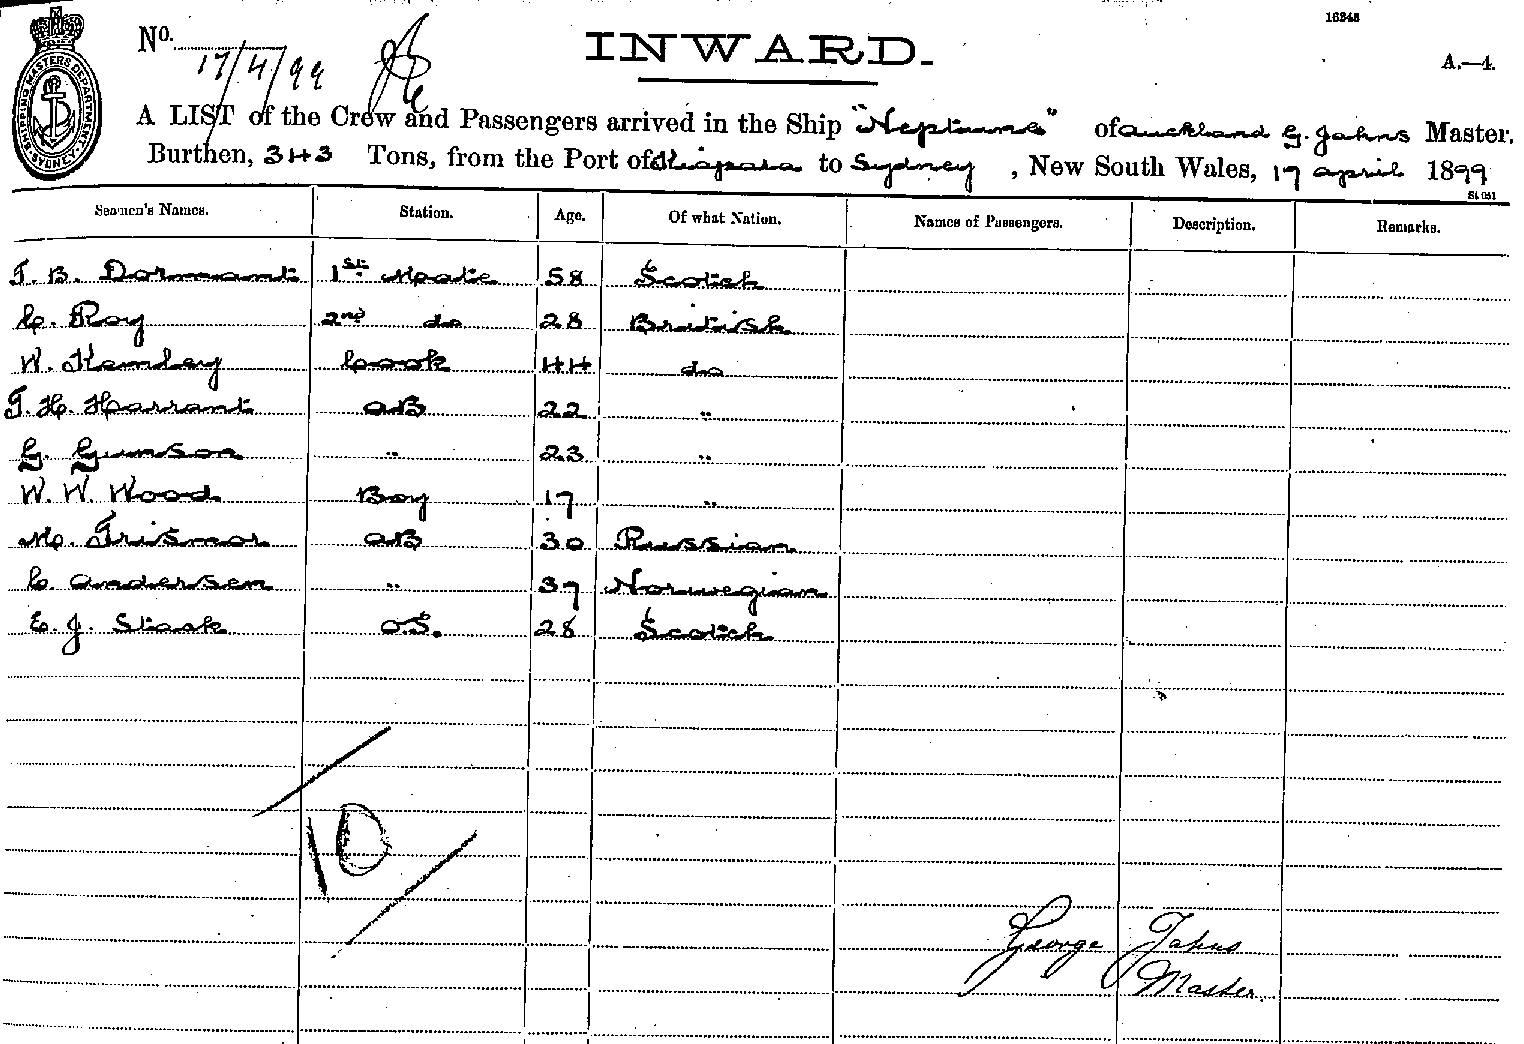 16348
No. 17/4/99
INWARD.
A.—4.
SHIPPING MASTERS DEPARTMENT. SYDNEY
A LIST of the Crew and Passengers arrived in the Ship "Neptune" of Auckland G. Jahns Master,
Burthen, 343 Tons, from the Port of Kaipara to Sydney, New South Wales, 17 april 1899
Seamen's Names. Station. Age. Of what Nation. Names of Passengers. Description. Remarks.
T. B. Dormant 1st Mate 58 Scotch
C. Roy 2nd do 28 British
W. Hemley Cook 44 do
T. H. Harrant aB 22 "
G. Gunson " 23 "
W. W. Wood Boy 17 "
M. Trismor aB 30 Russian
C. Andersen " 37 Norwegian
E. J. Stack O.S. 28 Scotch
10
George Jahns
Master.